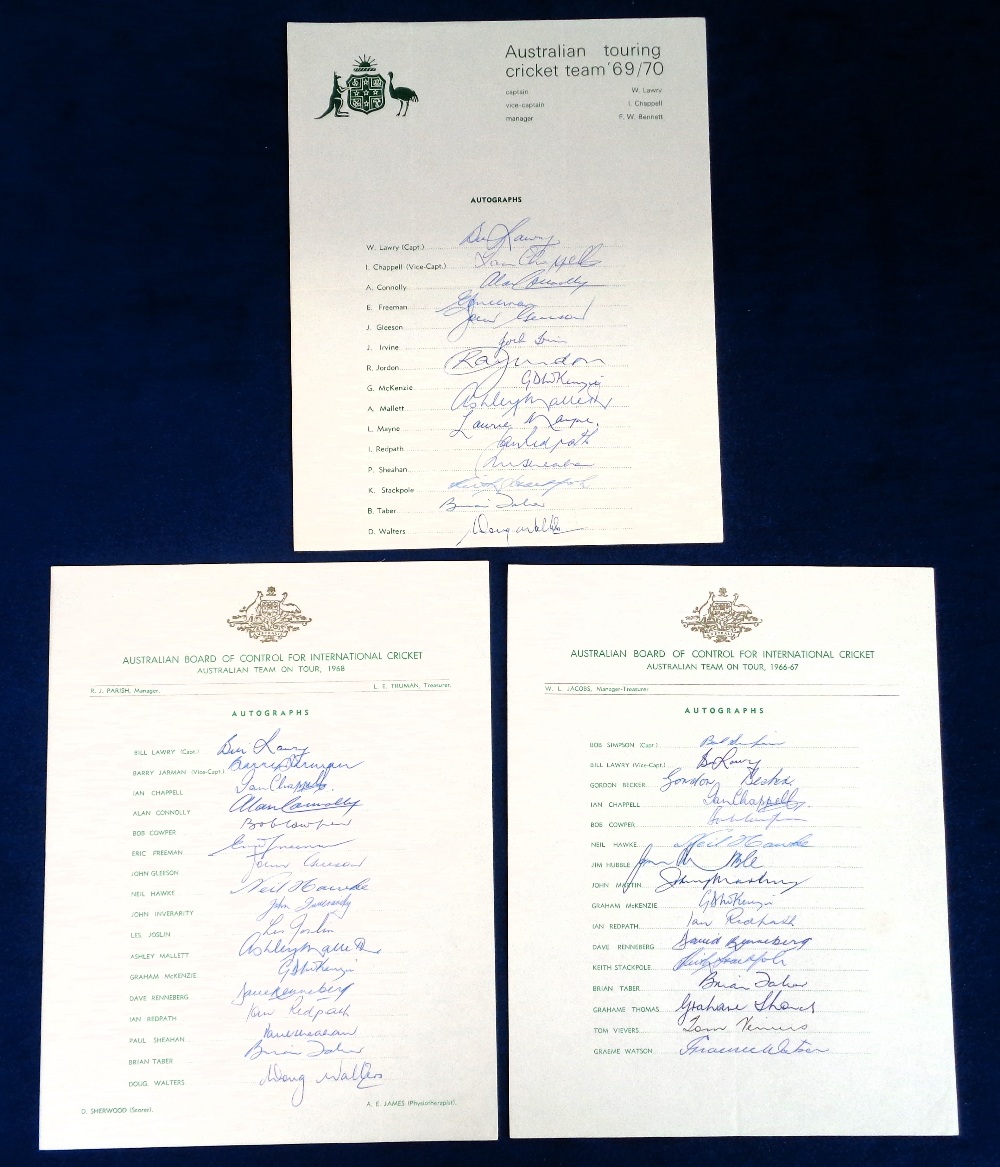 Australian touring
cricket team '69/70
captain W. Lawry
vice-captain I. Chappell
manager F. W. Bennett
AUTOGRAPHS
W. Lawry (Capt.) Bill Lawry
I. Chappell (Vice-Capt.) Ian Chappell
A. Connolly Alan Connolly
E. Freeman E Freeman
J. Gleeson John Gleeson
J. Irvine
R. Jordon Ray Jordon
G. McKenzie G D McKenzie
A. Mallett Ashley Mallett
L. Mayne Laurie Mayne.
I. Redpath Ian Redpath
P. Sheahan Sheahan
K. Stackpole Keith Stackpole
B. Taber Brian Taber
D. Walters Doug Walters
AUSTRALIAN BOARD OF CONTROL FOR INTERNATIONAL CRICKET
AUSTRALIAN TEAM ON TOUR, 1968
R. J. PARISH, Manager. L. E. TRUMAN, Treasurer.
AUTOGRAPHS
BILL LAWRY (Capt.) Bill Lawry
BARRY JARMAN (Vice-Capt.) Barry Jarman
IAN CHAPPELL Ian Chappell.
ALAN CONNOLLY Alan Connolly
BOB COWPER Bob Cowper
ERIC FREEMAN Eric Freeman
JOHN GLEESON John Gleeson
NEIL HAWKE Neil Hawke
JOHN INVERARITY John Inverarity
LES JOSLIN Les Joslin
ASHLEY MALLETT Ashley Mallett
GRAHAM McKENZIE G D McKenzie
DAVE RENNEBERG Dave Renneberg
IAN REDPATH Ian Redpath
PAUL SHEAHAN Paul Sheahan
BRIAN TABER Brian Taber
DOUG. WALTERS Doug Walters
D. SHERWOOD (Scorer). A. E. JAMES (Physiotherapist).
AUSTRALIAN BOARD OF CONTROL FOR INTERNATIONAL CRICKET
AUSTRALIAN TEAM ON TOUR, 1966-67
W. L. JACOBS, Manager-Treasurer
AUTOGRAPHS
BOB SIMPSON (Capt.) Bob Simpson
BILL LAWRY (Vice-Capt.) Bill Lawry
GORDON BECKER Gordon Becker
IAN CHAPPELL Ian Chappell.
BOB COWPER Bob Cowper
NEIL HAWKE Neil Hawke
JIM HUBBLE Jim Hubble
JOHN MARTIN John Martin
GRAHAM McKENZIE G D McKenzie
IAN REDPATH Ian Redpath
DAVE RENNEBERG David Renneberg
KEITH STACKPOLE Keith Stackpole
BRIAN TABER Brian Taber
GRAHAME THOMAS Grahame Thomas
TOM VIEVERS Tom Veivers
GRAEME WATSON Graeme Watson